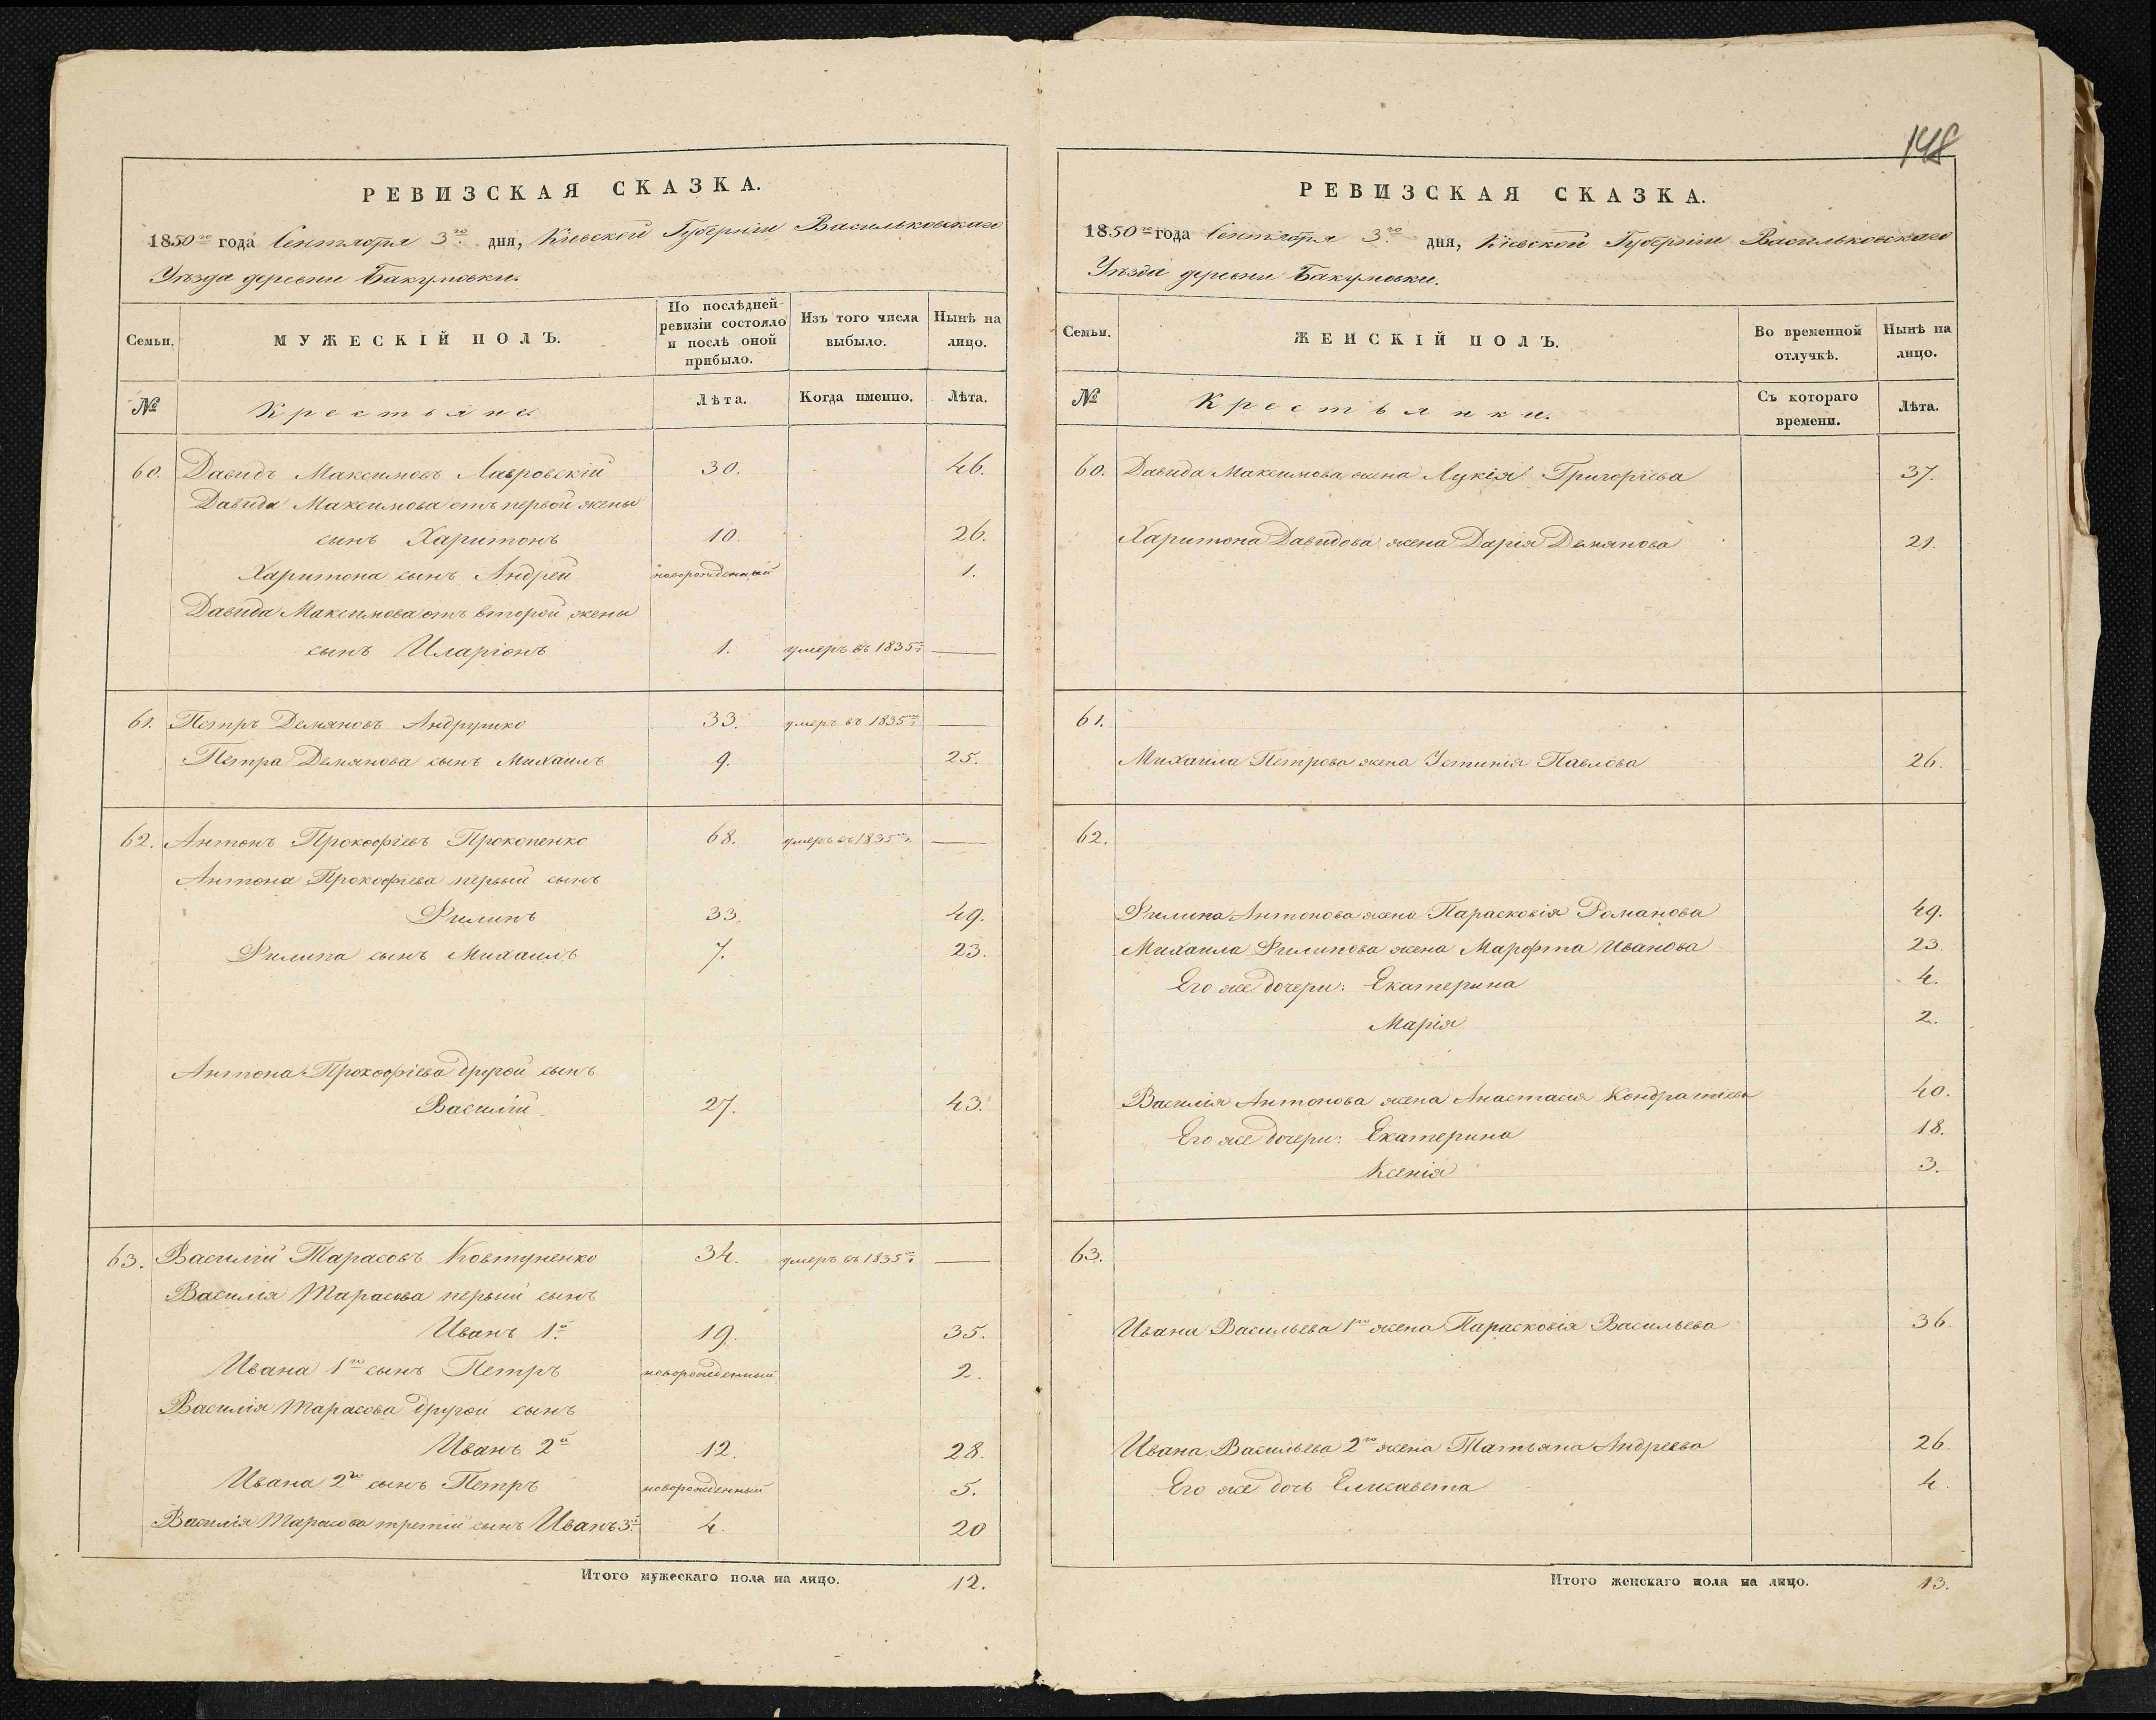 РЕВИЗСКАЯ СКАЗКА.
1850го года Сентября 3го дня, Кіевской Губерніи Васильковскаго
Уѣзда деревни Бакумовки.
Семьи.
МУЖЕСКІЙ ПОЛЪ.
По послѣдней ревизіи состояло и послѣ оной прибыло.
Изъ того числа выбыло.
Нынѣ на лицо.
№
Крестьяне
Лѣта.
Когда именно.
Лѣта.
60. Давидъ Максимовъ Лавровскій 30. 46.
Давида Максимова отъ первой жены
сынъ Харитонъ 10. 26.
Харитона сынъ Андрей новорожденный 1.
Давида Максимова отъ второй жены
сынъ Иларіонъ 1. умеръ въ 1835 г. —
61. Петръ Демяновъ Андрушко 33. умеръ въ 1835 г. —
Петра Демянова сынъ Михаилъ 9. 25.
62. Антонъ Прокофіевъ Прокопенко 68. умеръ въ 1835 г. —
Антона Прокофіева первый сынъ
Филипъ 33. 49.
Филипа сынъ Михаилъ 7. 23.
Антона Прокофіева другой сынъ
Василій 27. 43.
63. Василій Тарасовъ Ковтуненко 34. умеръ въ 1835 г. —
Василія Тарасова первый сынъ
Иванъ 1й 19. 35.
Ивана 1го сынъ Петръ новорожденный 2.
Василія Тарасова другой сынъ
Иванъ 2й 12. 28.
Ивана 2го сынъ Петръ новорожденный 5.
Василія Тарасова третій сынъ Иванъ 3й 4. 20
Итого мужескаго пола на лицо. 12.
148
РЕВИЗСКАЯ СКАЗКА.
1850го года Сентября 3го дня, Кіевской Губерніи Васильковскаго
Уѣзда деревни Бакумовки.
Семьи.
ЖЕНСКІЙ ПОЛЪ.
Во временной отлучкѣ.
Нынѣ на лицо.
№
Крестьянки.
Съ котораго времени.
Лѣта.
60. Давида Максимова жена Лукія Григоріева 37.
Харитона Давидова жена Дарія Демянова 21.
61.
Михаила Петрова жена Устинія Павлова 26.
62.
Филипа Антонова жена Парасковія Романова 49.
Михаила Филипова жена Марфта Иванова 23.
Его же дочери: Екатерина 4.
Марія 2.
Василія Антонова жена Анастасія Кондратіева 40.
Его же дочери: Екатерина 18.
Ксенія 3.
63.
Ивана Васильева 1го жена Парасковія Васильева 36.
Ивана Васильева 2го жена Татьяна Андреева 26.
Его же дочь Елисавета 4.
Итого женскаго пола на лицо. 13.